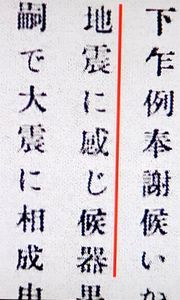 下乍例奉謝候いか
地震に感じ候器
嗣で大震に相成申